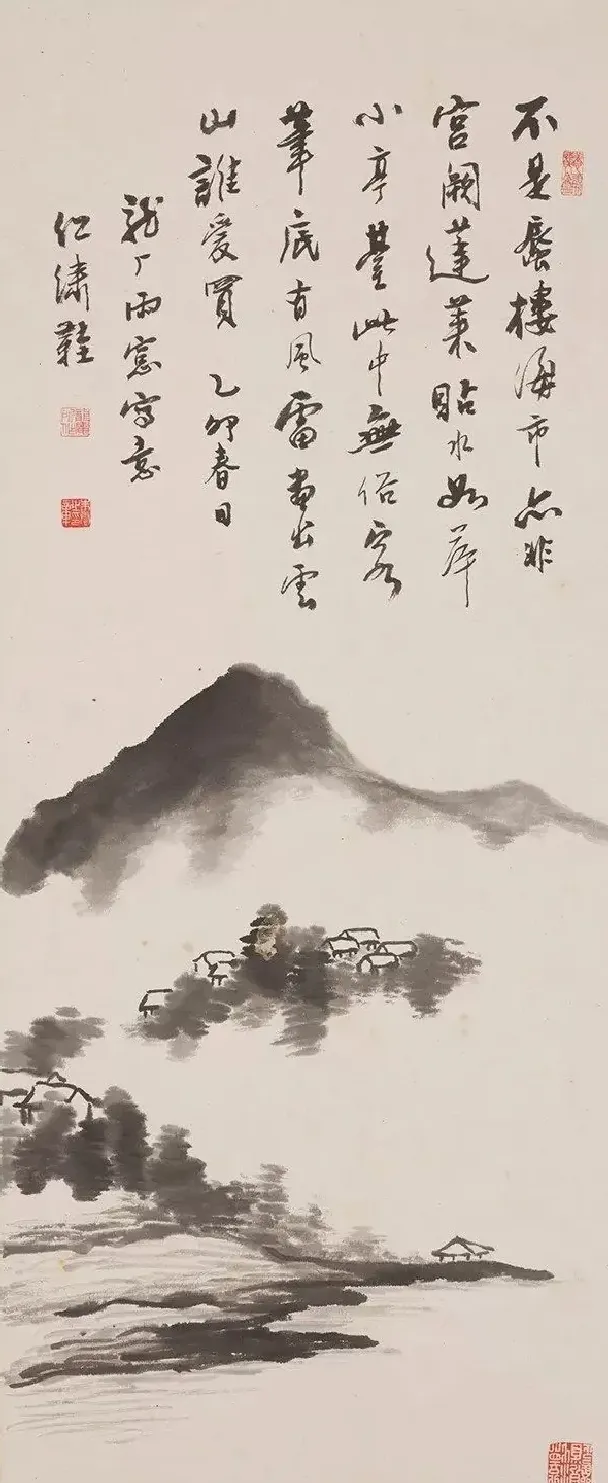 不是蜃樓海市亦非
宮闕蓬萊貼水如萍
小亭臺此中無俗客
筆底有風雷畫出雲
山誰愛買 乙卯春日
龍丁雨窗寫意